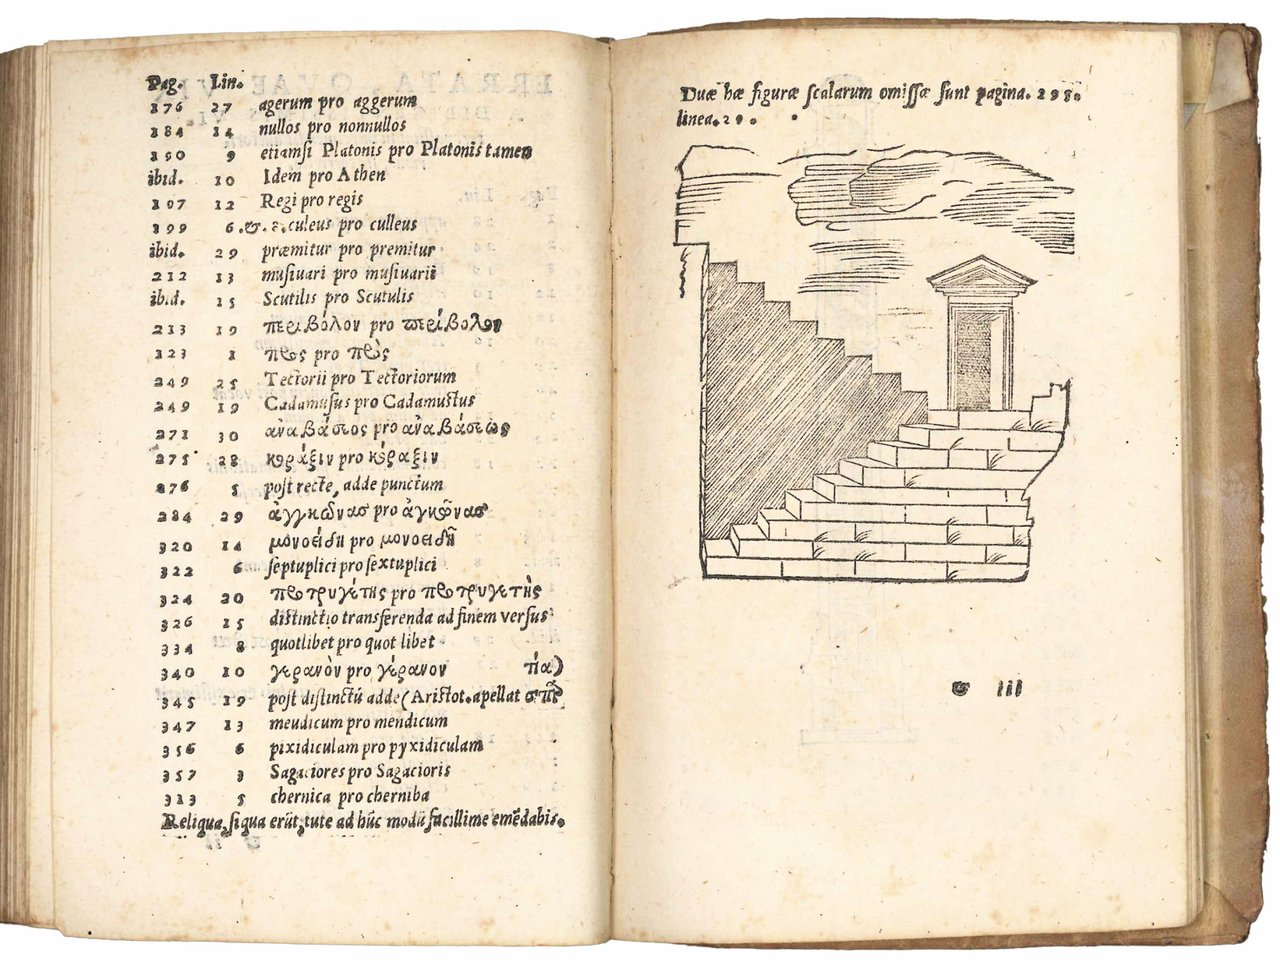 Pag. Lin.
176 27 agerum pro aggerum
184 14 nullos pro nonnullos
190 9 etiamsi Platonis pro Platonis tamen
ibid. 10 Idem pro Athen
197 12 Regi pro regis
199 6. &. culeus pro culleus
ibid. 29 præmitur pro premitur
212 13 musiuari pro musiuarii
ibid. 15 Scutilis pro Scutulis
213 19 πειβόλον pro πείβολον
223 1 πῶς pro πὼς
249 25 Tectorii pro Tectoriorum
249 29 Cadamusus pro Cadamustus
271 30 ἀναβάσιος pro ἀναβάσιως
275 28 pro
276 5 post recte, adde punctum
284 29 ἀγγκῶνας pro ἀγκῶνας
320 14 μονοείδη pro μονοειδῆ
322 6 septuplici pro sextuplici
324 20 pro
326 15 distinctio transferenda ad finem versus
334 8 quotlibet pro quot libet
340 10 γερανὸν pro γέρανον τία)
345 19 post distinctũ adde (Aristot. apellat
347 13 meudicum pro mendicum
356 6 pixidiculam pro pyxidiculam
357 3 Sagaciores pro Sagacioris
313 5 chernica pro cherniba
Reliqua, siqua erũt, tute ad hũc modũ facillime emẽdabis.
Duæ hæ figuræ scalarum omissæ sunt pagina. 293.
linea. 29.
iii